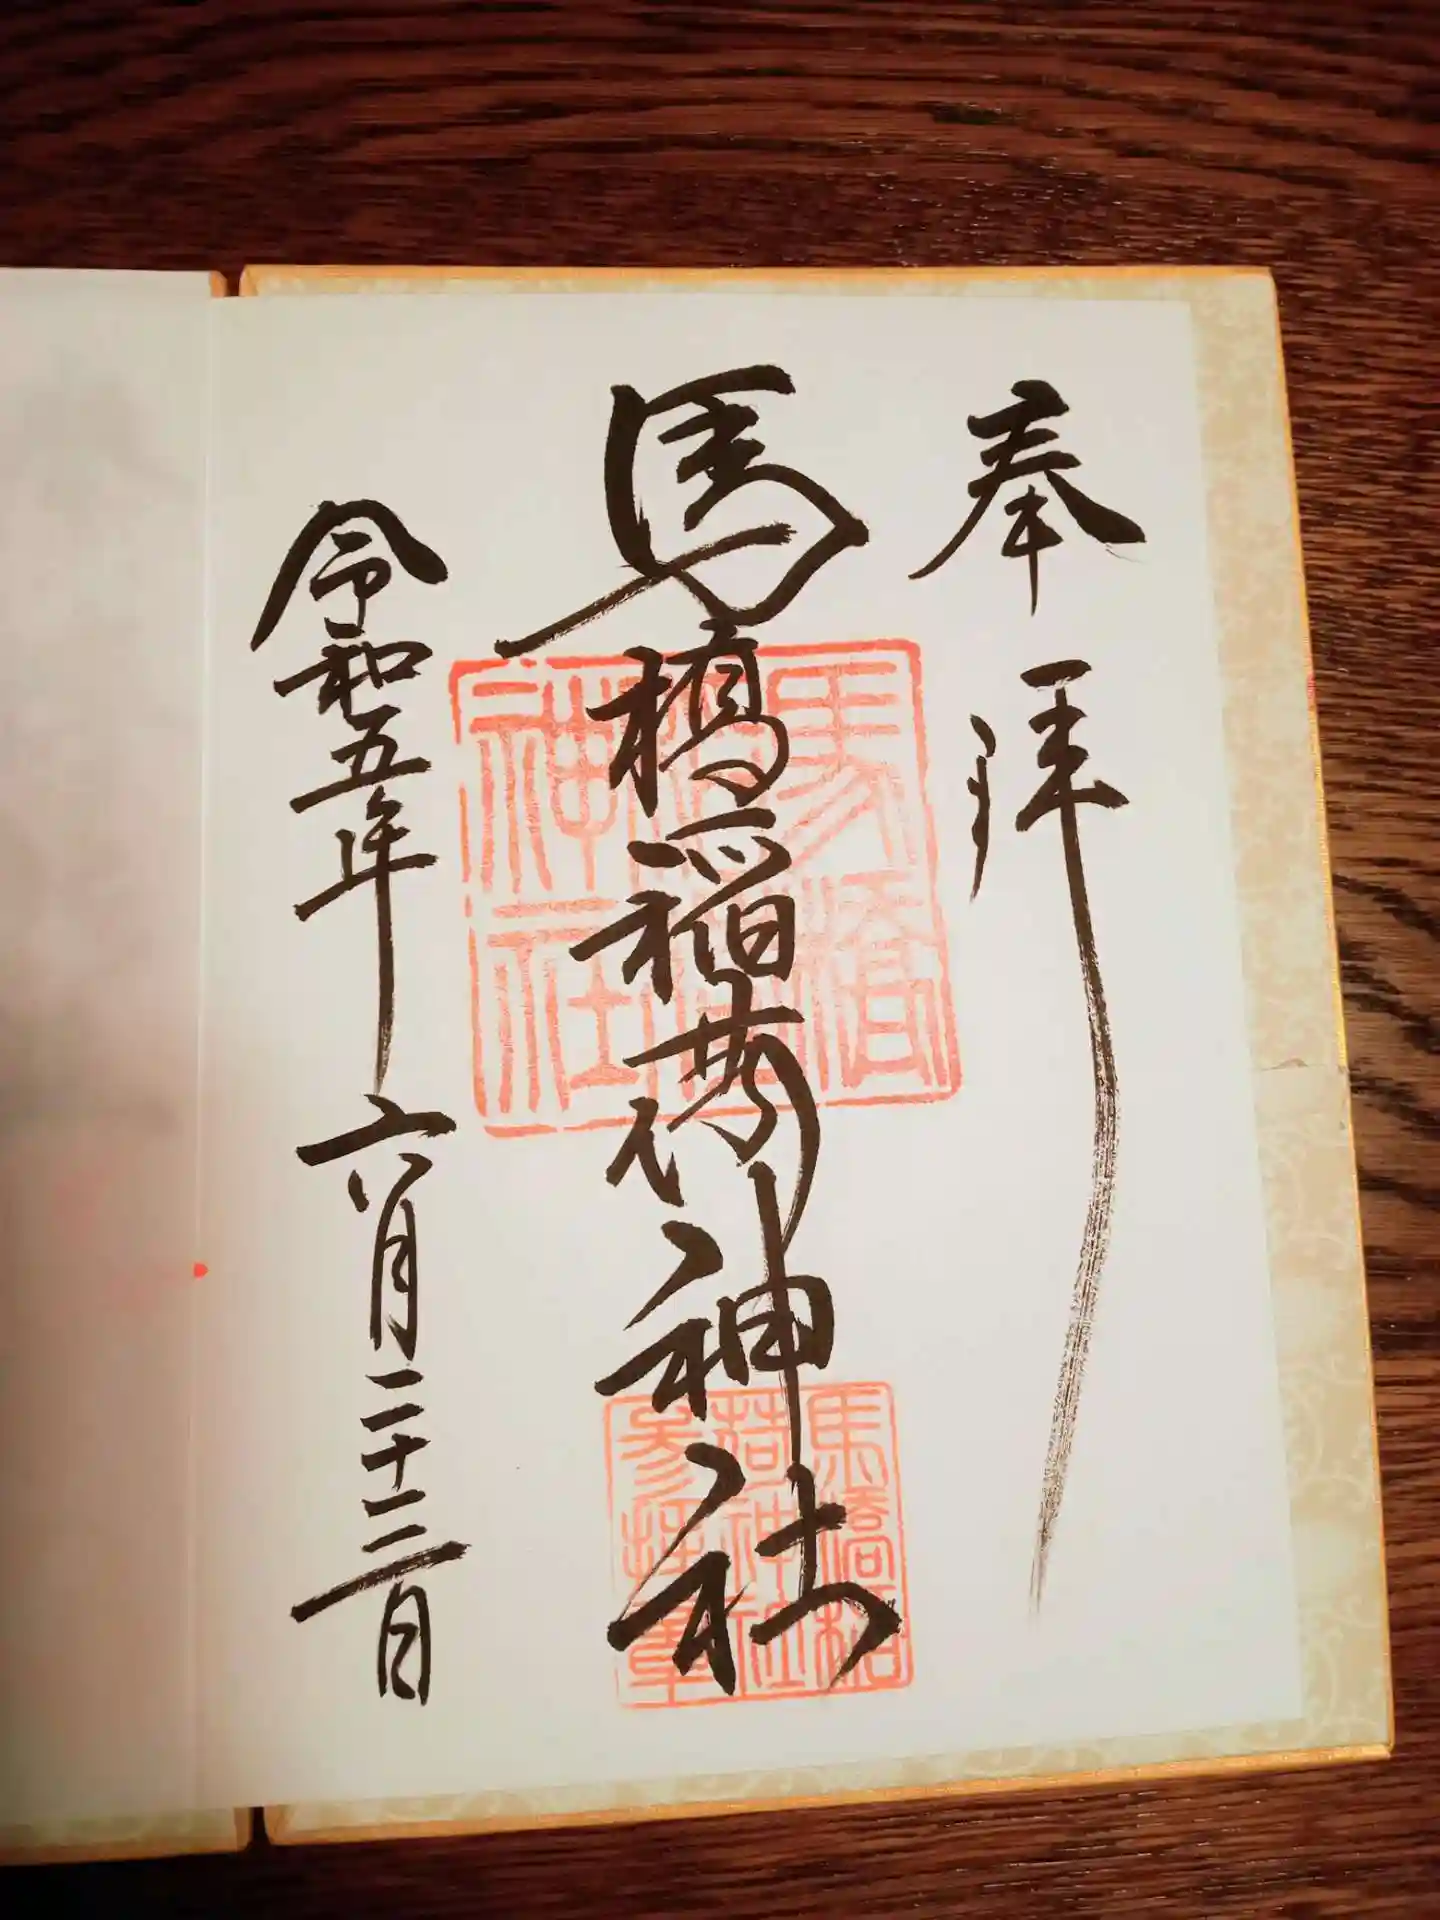 奉拝
馬橋稲荷神社
令和五年六月二十三日
馬橋
神社
馬橋稲
荷神社
参拝章